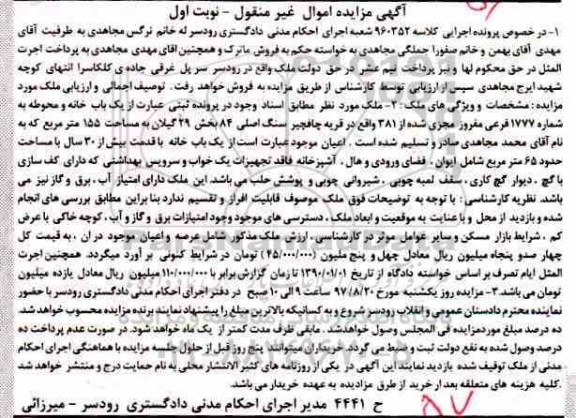 آگهی مزایده اموال غیر منقول - نوبت اول
۱- در خصوص پرونده اجرایی کلاسه ۹۶۰۳۵۲ شعبه اجرای احکام مدنی دادگستری رودسر له خانم نرگس مجاهدی به طرفیت آقای
مهدی آقای بهمن و خانم صفورا جملگی مجاهدی به خواسته حکم به فروش ماترک و همچنین آقای مهدی مجاهدی به پرداخت اجرت
المثل در حق محکوم لها و نیز پرداخت نیم عشر در حق دولت ملک واقع در رودسر سر پل غرفی جاده ی کلکاسرا انتهای کوچه
شهید ایرج مجاهدی سپس از ارزیابی توسط کارشناس از طریق مزایده به فروش خواهد رفت. توصیف اجمالی و ارزیابی ملک مورد
مزایده: مشخصات و ویژگی های ملک: ۲- ملک مورد نظر مطابق اسناد وجود در پرونده ثبتی عبارت از یک باب خانه و محوطه به
شماره ۱۷۷۷ فرعی مفروز مجزی شده از ۳۸۱ واقع در قریه چافجیر سنگ اصلی ۸۴ بخش ۲۹ گیلان به مساحت ۱۵۵ متر مربع که به
نام آقای محمد مجاهدی صادر و تسلیم شده است. اعیان موجود عبارت است از یک باب خانه با قدمت بیش از ۳۰ سال با مساحت
حدود ۶۵ متر مربع شامل ایوان، فضای ورودی و هال، آشپزخانه فاقد تجهیزات یک خواب و سرویس بهداشتی که دارای کف سازی
با گچ، دیوار گچ کاری، سقف لمبه چوبی، شیروانی چوبی و پوشش حلب می باشد. این ملک دارای امتیاز آب، برق و گاز نیز می
باشد. نظریه کارشناسی: با توجه به توضیحات فوق ملک موصوف قابلیت افراز و تقسیم ندارد بنا براین مطابق بررسی های انجام
شده و بازدید از محل و با عنایت به موقعیت و ابعاد ملک، دسترسی های موجود وجود امتیازات برق و گاز و آب، کوچه خاکی با عرض
کم، شرایط بازار مسکن و سایر عوامل موثر در کارشناسی، ارزش ملک مذکور شامل عرصه و اعیان موجود در آن، به قیمت کل
چهار صدو پنجاه میلیون ریال معادل چهل و پنج ملیون (۴۵/۰۰۰/۰۰۰) تومان در شرایط کنونی بر آورد میگردد. همچنین اجرت
المثل ایام تصرف بر اساس خواسته دادگاه از تاریخ ۱۳۹۰/۰۱/۰۱ تا زمان گزارش برابر با ۱۱۰/۰۰۰/۰۰۰ میلیون ریال معادل یازده میلیون
تومان می باشد. ۳- مزایده روز یکشنبه مورخ ۹۷/۸/۲۰ ساعت ۹ الی ۱۰ صبح در دفتر اجرای احکام مدنی دادگستری رودسر با حضور
نماینده محترم دادستان عمومی و انقلاب رودسر شروع و به کسانیکه بالاترین مبلغ را پیشنهاد نمایند برنده مزایده محسوب خواهد شد.
ده درصد مبلغ مورد مزایده فی المجلس وصول خواهد شد. مابقی ظرف مدت کمتر از یک ماه خواهد شود. در صورت عدم پرداخت ده
درصد وصول شده به نفع دولت ثبت و ضبط می گردد. خریداران میتواند پنج روز قبل از حلول جلسه مزایده با هماهنگی اجرای احکام
مدنی از ملک توقیف شده بازدید نمایند این آگهی در یکی از روزنامه های کثیر الانتشار محلی به نام حمایت درج و منتشر خواهد شد
. کلیه هزینه های متعلقه بعد از خرید از طرق مزایده به عهده خریدار می باشد.
ح ۴۴۴۱ مدیر اجرای احکام مدنی دادگستری رودسر - میرزائی